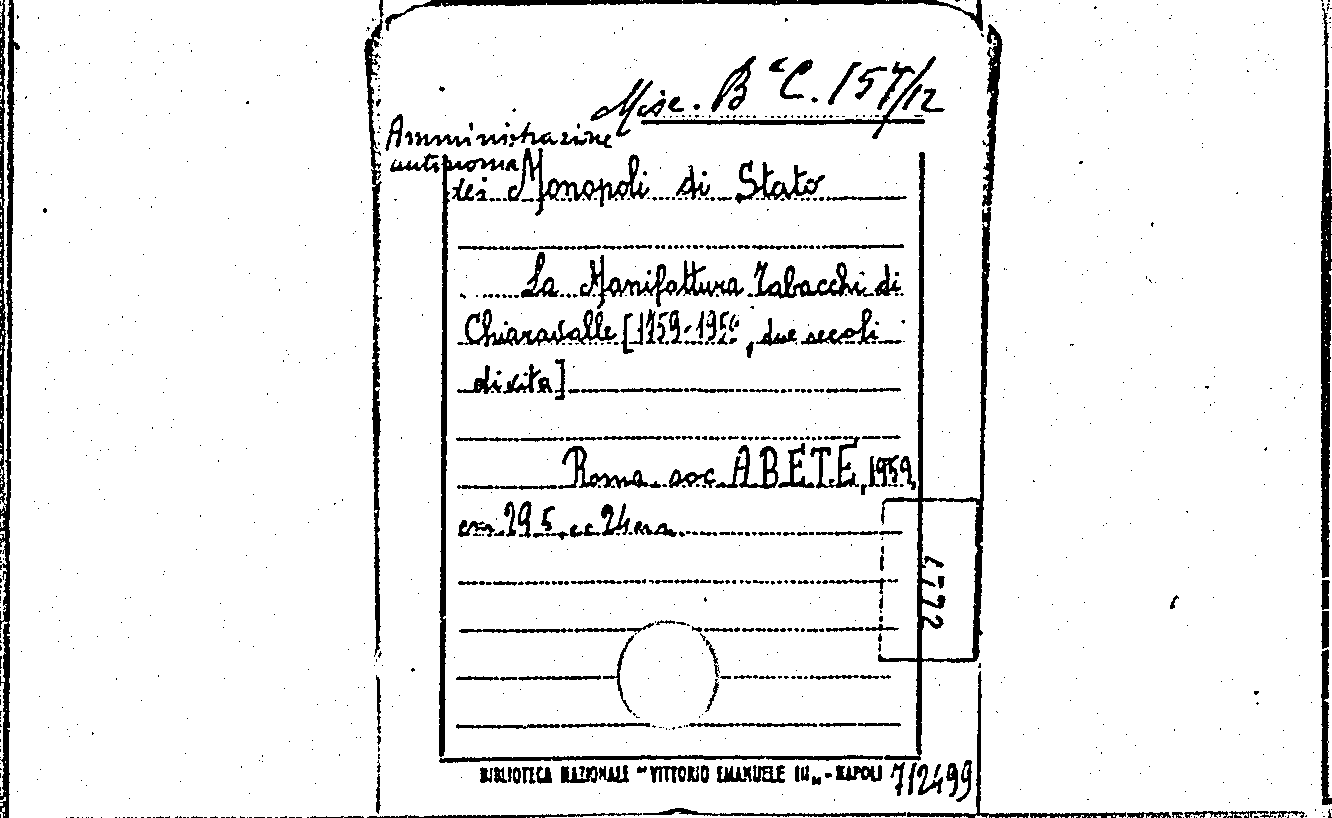 Misc. Bᵃ C. 157/12
Amministrazione
autonoma
dei Monopoli di Stato
La Manifattura Tabacchi di
Chiaravalle [1759-1959, due secoli
di vita]
Roma, soc. A.B.E.T.E., 1959,
cm. 29,5, cc. 24
4722
BIBLIOTECA NAZIONALE "VITTORIO EMANUELE III„ - NAPOLI 712499